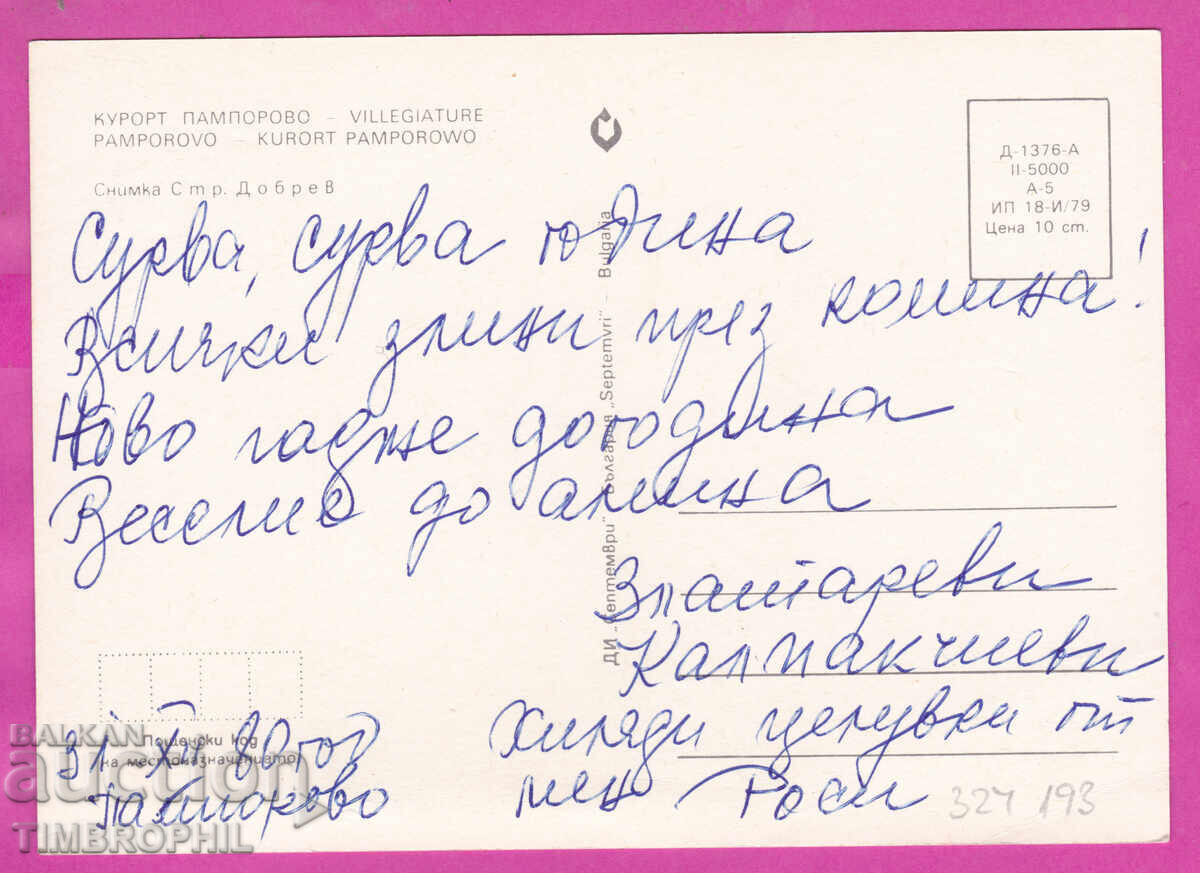 КУРОРТ ПАМПОРОВО – VILLEGIATURE
PAMPOROVO – KURORT PAMPOROWO
Снимка Стр. Добрев
Д-1376-А
II-5000
А-5
ИП 18-И/79
Цена 10 ст.
Сурва, сурва година
Всички злини през комина!
Ново гадже догодина
Веселие до амина
ДИ „Септември" България „Septemvri" – Bulgaria
Златареви
Калпакчиеви
Хиляди целувки от
мен Роси
31 XII 80 год
Пампорово
Пощенски код
на местоназначението
324 193
BALKAN
auction
TIMBROPHIL